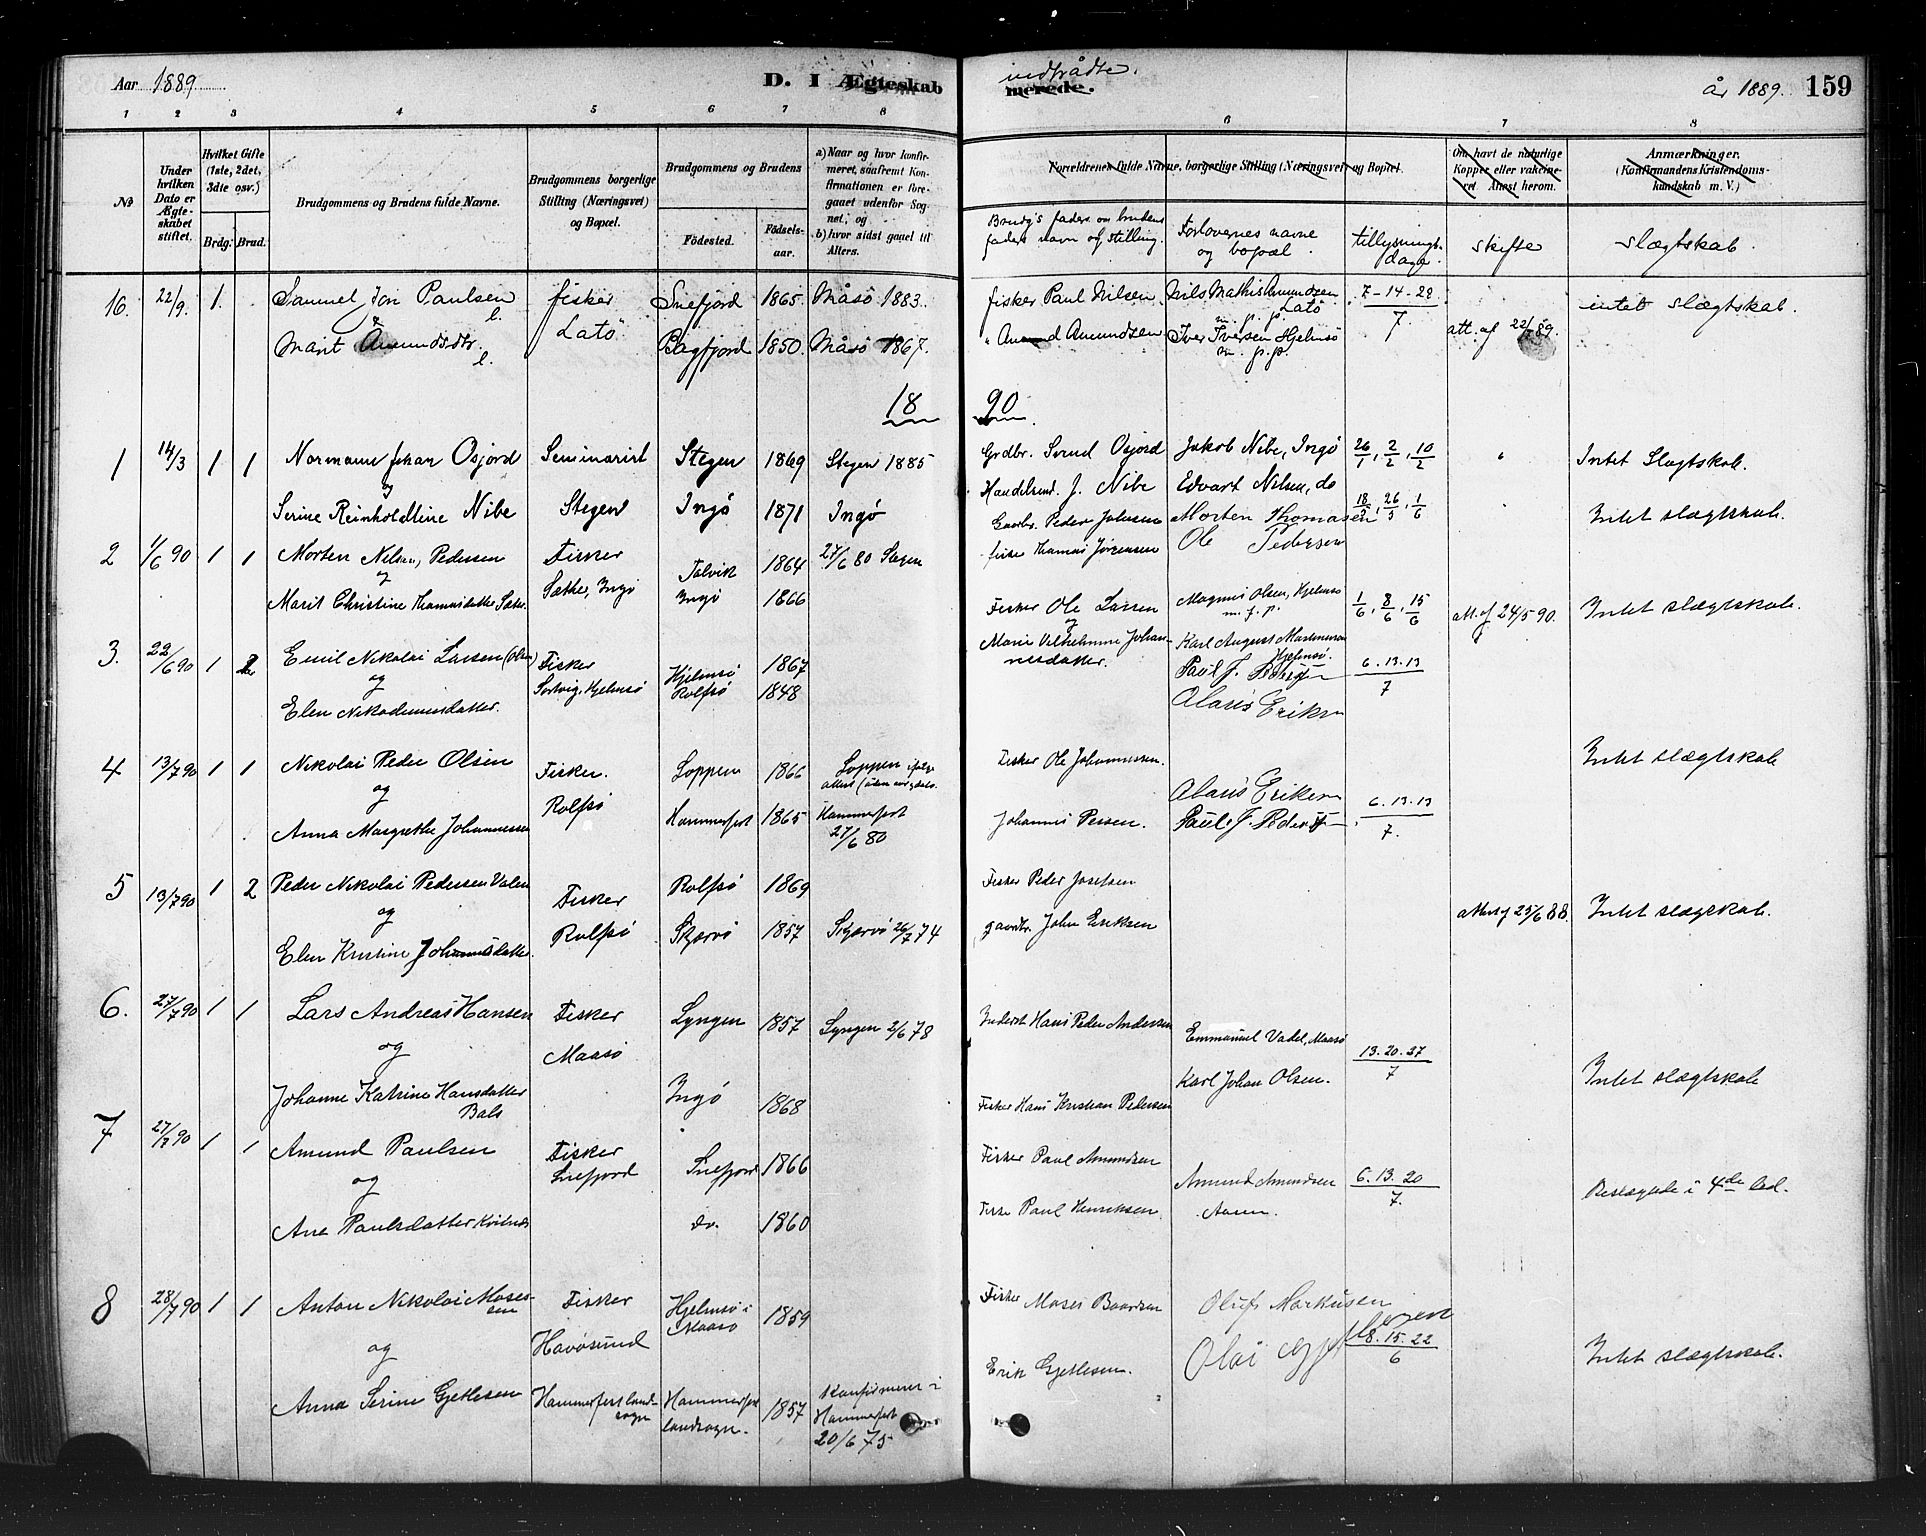 Aar 1889. D. I Ægteskab indtrådte. merede. år 1889. 159
1 2 3 4 5 6 7 8 6 7 8
No
Under hvilken Dato er Ægteskabet stiftet.
Hvilket Gifte (1ste, 2det, 3die osv.)
Brdg. Brud.
Brudgommens og Brudens fulde Navne.
Brudgommens borgerlige Stilling (Næringsvei) og Bopæl.
Brudgommens og Brudens
Fødested. Fødselsaar.
a) Naar og hvor konfirmeret, saafremt Konfirmationen er foregaaet udenfor Sognet; og
b) hvor sidst gaaet til Alters.
Forældrenes fulde Navne, borgerlige Stilling (Næringsvei) og Bopæl.
Om havt de naturlige Kopper eller vaccineret. Attest herom.
Anmærkninger. (Konfirmandens Kristendomskundskab m. V.)
Brudg's faders og brudens faders navn og stilling.
Forlovernes navne og bopæl
tillysningsdage.
skifte
slægtskab.
16. 22/9. 1. Samuel Jon Paulsen fisker Snefjord 1865. Måsö 1883. fisker Paul Nilsen. Nils Mathis Amundsen Latö m. p. p. 7-14-28 intet slægtskab.
&
Marit Amundsdtr. Latö Bagfjord 1850. Måsö 1867. " Amund Amundsen Iver Iversen Hjelmsö m. p. p. 7. att. af 22/7 89.
18 90
1 14/3 1 1 Normann Johan Osjord Seminarist Stegen 1869 Stegen 1885 Grdbr. Svend Osjord Jakob Nibe, Ingö 26/1, 2/2, 10/2 Intet Slægtskab.
og
Serine Reinholdtine Nibe Stegen Ingø 1871 Ingø Handelsmd. J. Nibe Edvart Nilsen, do
Gaardbr. Peder Johnsen Morten Thomasen 18/5, 26/5, 1/6 Intet slægtskab.
2 1/6 90 1 1 Morten Nilsen, Pedersen Fisker Talvik 1864 27/6 80 fisker Thomas Jørgensen Ole Pedersen
og
Marit Christine Thomasdatter Sather Sather, Ingø Ingø 1866
3. 22/6 90 1 2 Emil Nikolai Larsen (Olsen) Fisker Hjelmsö 1867 Fisker Ole Larsen Magnus Olsen, Hjelmsö m. f. p. 1/6, 8/6, 15/6 att. af 24/5 90. Intet slægtskab.
og
Elen Nikodemusdatter. Sortvig, Hjelmsö Rolfsö 1848 Marie Vilhelmine Johannesdatter. Karl August Martinusen Hjelmsö.
Paul J. Pedersen 6.13.13
Olaus Eriksen 7
4 13/7 90 1 1 Nikolai Peder Olsen Fisker. Loppen 1866 Loppen Fisker Ole Johannessen. Intet slægtskab
og
Rolfsö Olaus Eriksen 6.13.13
Anna Margrethe Johannessen Hammerfest 1865 Hammerfest 27/6 80 Johannes Persen. Paul J. Pedersen 7.
5 13/7 90 1 2 Peder Nikolai Pedersen Valen Fisker Rolfsö 1869 Fisker Peder Josefsen
og
Elen Kristine Johannesdatter. Rolfsö Skjervö 1857 Skjervö 26/7 74 gaardbr. John Eriksen attest af 25/6 88 Intet slægtskab.
6. 27/7 90 1 1 Lars Andreas Hansen Fisker Lyngen 1857 Lyngen 2/6 78 Inderst Hans Peder Andersen Emmanuel Vadel, Maasö 13.20.27
og
Maasö Karl Johan Olsen. 7 Intet slægtskab
Johanne Katrine Hansdatter Bals Ingø 1868 Fisker Hans Kristian Pedersen
7 27/7 90 1 1 Amund Paulsen Fisker Snefjord 1866 Fisker Paul Amundsen Amund Amundsen 6.13.20
og
Snefjord 7. Beslægtede i 4de led.
Ane Paulsdatter do. 1860 Fisker Paul Henriksen.
8 28/7 90 1 1 Anton Nikolai Mosessen Fisker Hjelmsö i Maasö 1859 Fisker Moses Baardsen Oluf Markusen
og
Havösund Olai 8.15.22 6 Intet slægtskab.
Anna Serine Gjetlesen Hammerfest landsogn Hammerfest landsogn. 1857 Konfirmeret i Hammerfest 20/6 75 Erik Gjetlesen.